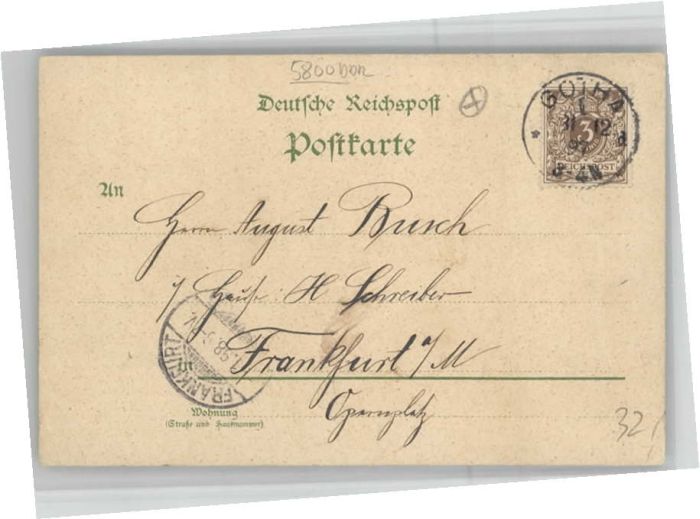 5800
Deutsche Reichspost
Postkarte
GOTHA
1
31 12
97
3-4N
3
REICHSPOST
An
Herrn August Busch
Hause: H Schreiber
in Frankfurt a/M
Opernplatz
FRANKFURT
Wohnung
(Straße und Hausnummer)
32